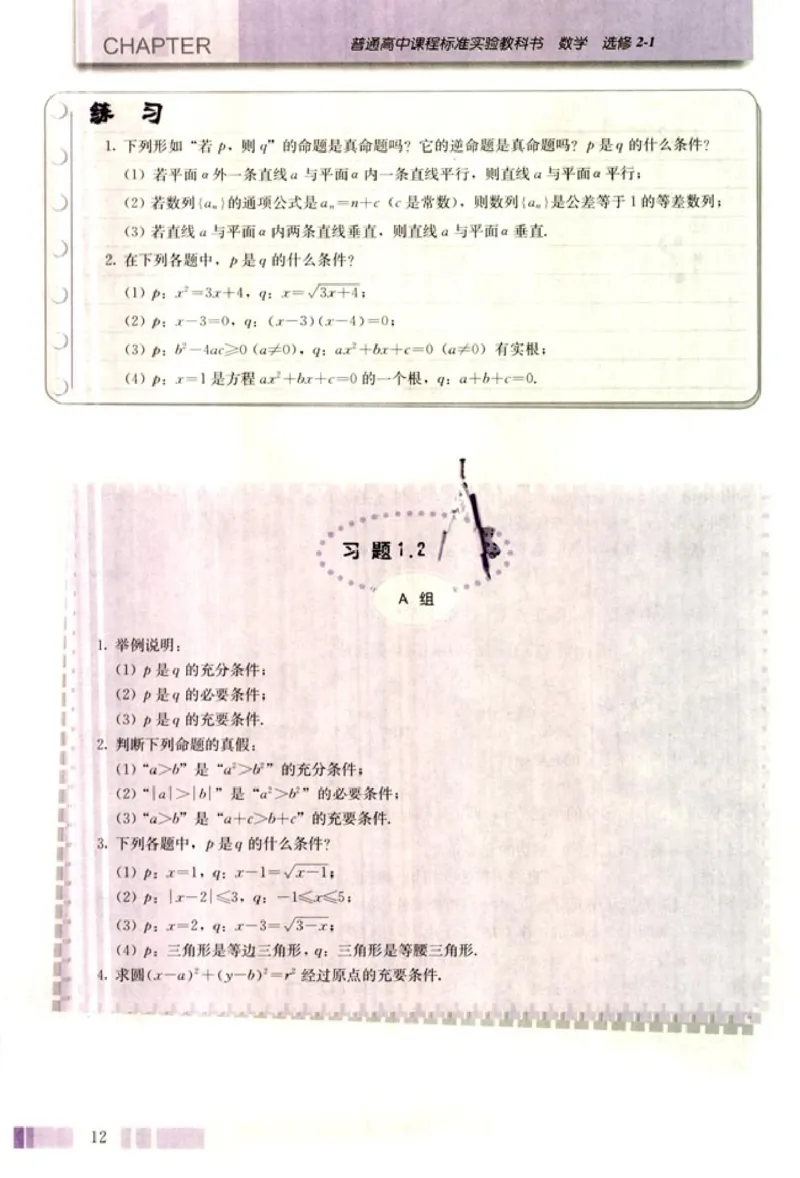 1
CHAPTER
普通高中课程标准实验教科书 数学 选修 2-1
练 习
1. 下列形如“若 p，则 q”的命题是真命题吗？它的逆命题是真命题吗？p 是 q 的什么条件？
（1）若平面 α 外一条直线 a 与平面 α 内一条直线平行，则直线 a 与平面 α 平行；
（2）若数列{aₙ}的通项公式是 aₙ=n+c（c 是常数），则数列{aₙ}是公差等于 1 的等差数列；
（3）若直线 a 与平面 α 内两条直线垂直，则直线 a 与平面 α 垂直.
2. 在下列各题中，p 是 q 的什么条件？
（1）p：x²=3x+4，q：x=√(3x+4)；
（2）p：x-3=0，q：(x-3)(x-4)=0；
（3）p：b²-4ac⩾0 (a≠0)，q：ax²+bx+c=0 (a≠0) 有实根；
（4）p：x=1 是方程 ax²+bx+c=0 的一个根，q：a+b+c=0.
习 题 1.2
A 组
1. 举例说明：
（1）p 是 q 的充分条件；
（2）p 是 q 的必要条件；
（3）p 是 q 的充要条件.
2. 判断下列命题的真假：
（1）“a>b”是“a²>b²”的充分条件；
（2）“|a|>|b|”是“a²>b²”的必要条件；
（3）“a>b”是“a+c>b+c”的充要条件.
3. 下列各题中，p 是 q 的什么条件？
（1）p：x=1，q：x-1=√(x-1)；
（2）p：|x-2|⩽3，q：-1⩽x⩽5；
（3）p：x=2，q：x-3=√(3-x)；
（4）p：三角形是等边三角形，q：三角形是等腰三角形.
4. 求圆(x-a)²+(y-b)²=r² 经过原点的充要条件.
12